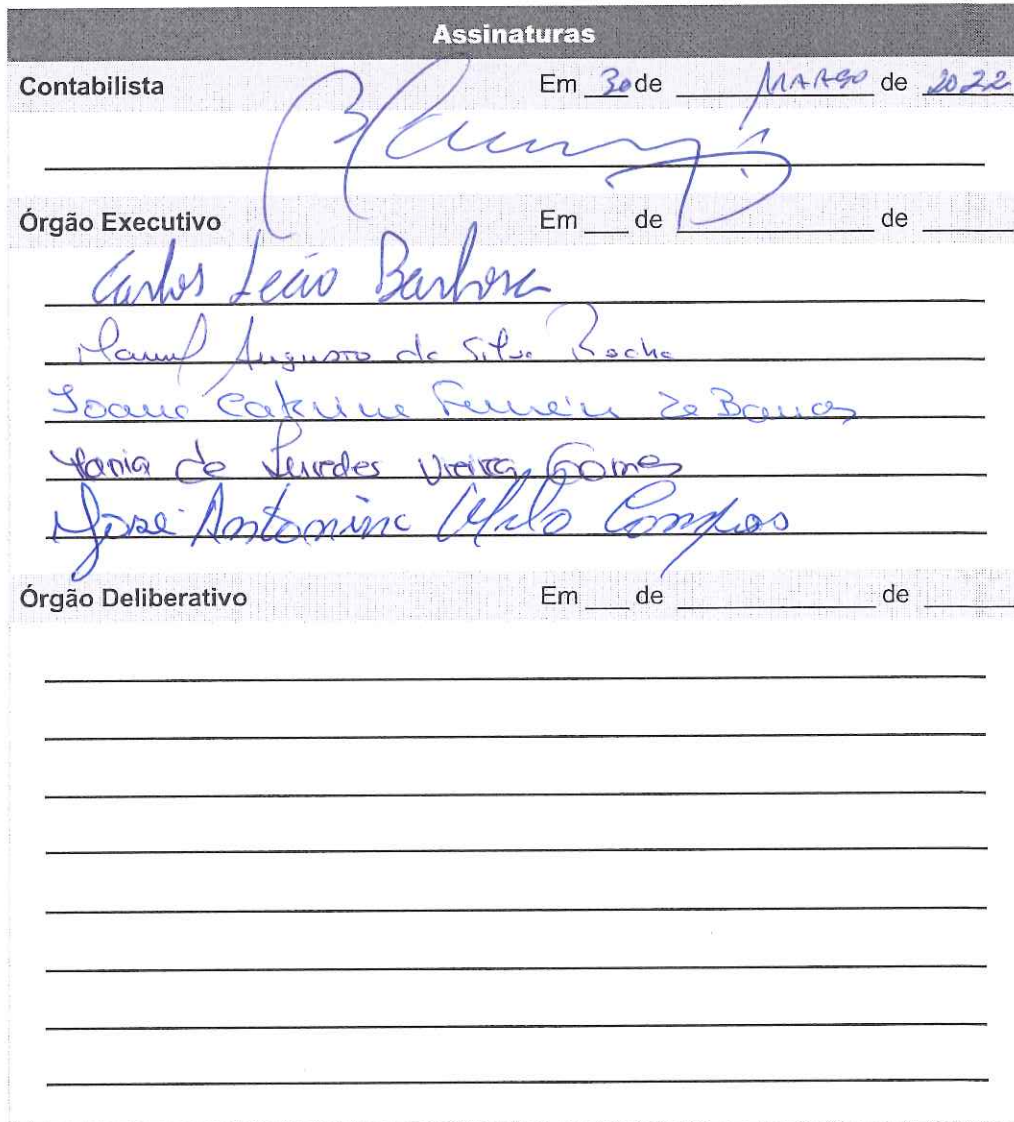 Assinaturas
Contabilista Em 30 de MARÇO de 2022
Órgão Executivo Em ___ de ___ de ___
Carlos Barbosa
Manuel Augusto da Silva Rocha
Joana Catarina Ferreira de Barros
Maria de Lurdes Vieira Gomes
José Antonino Campos
Órgão Deliberativo Em ___ de ___ de ___